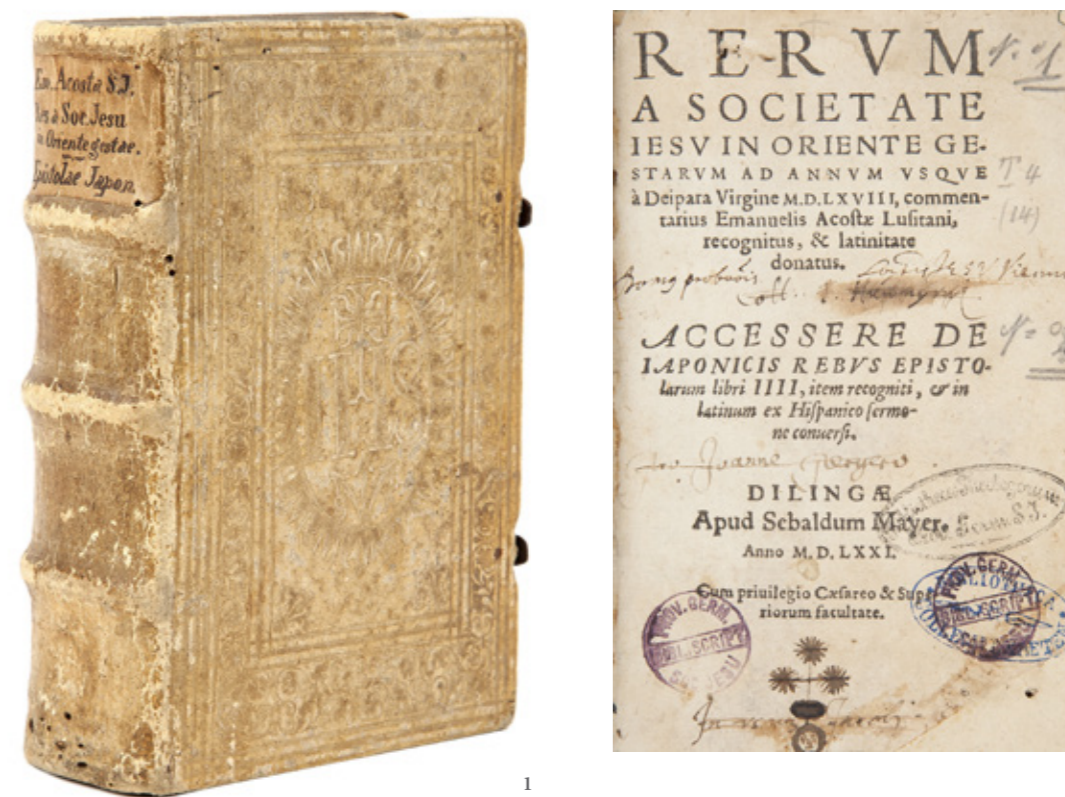 Em. Acosta S.J.
Res a Soc. Jesu
in Oriente gestae.
Epistolae Japon.
RERVM
A SOCIETATE
IESV IN ORIENTE GE-
STARVM AD ANNVM VSQVE
à Deipara Virgine M.D.LXVIII, commen-
tarius Emanuelis Acostæ Lusitani,
recognitus, & latinitate
donatus.
ACCESSERE DE
IAPONICIS REBVS EPISTO-
larum libri IIII, item recogniti, & in
latinum ex Hispanico sermo-
ne conuersi.
Joanne
DILINGÆ
Apud Sebaldum Mayer.
Anno M. D. LXXI.
Cum priuilegio Cæsareo & Supe
riorum facultate.
PROV. GERM.
BIBL. SCRIPT
SOC. JESU
PROV. GERM.
BIBL. SCRIPT
T 4
(14)
1